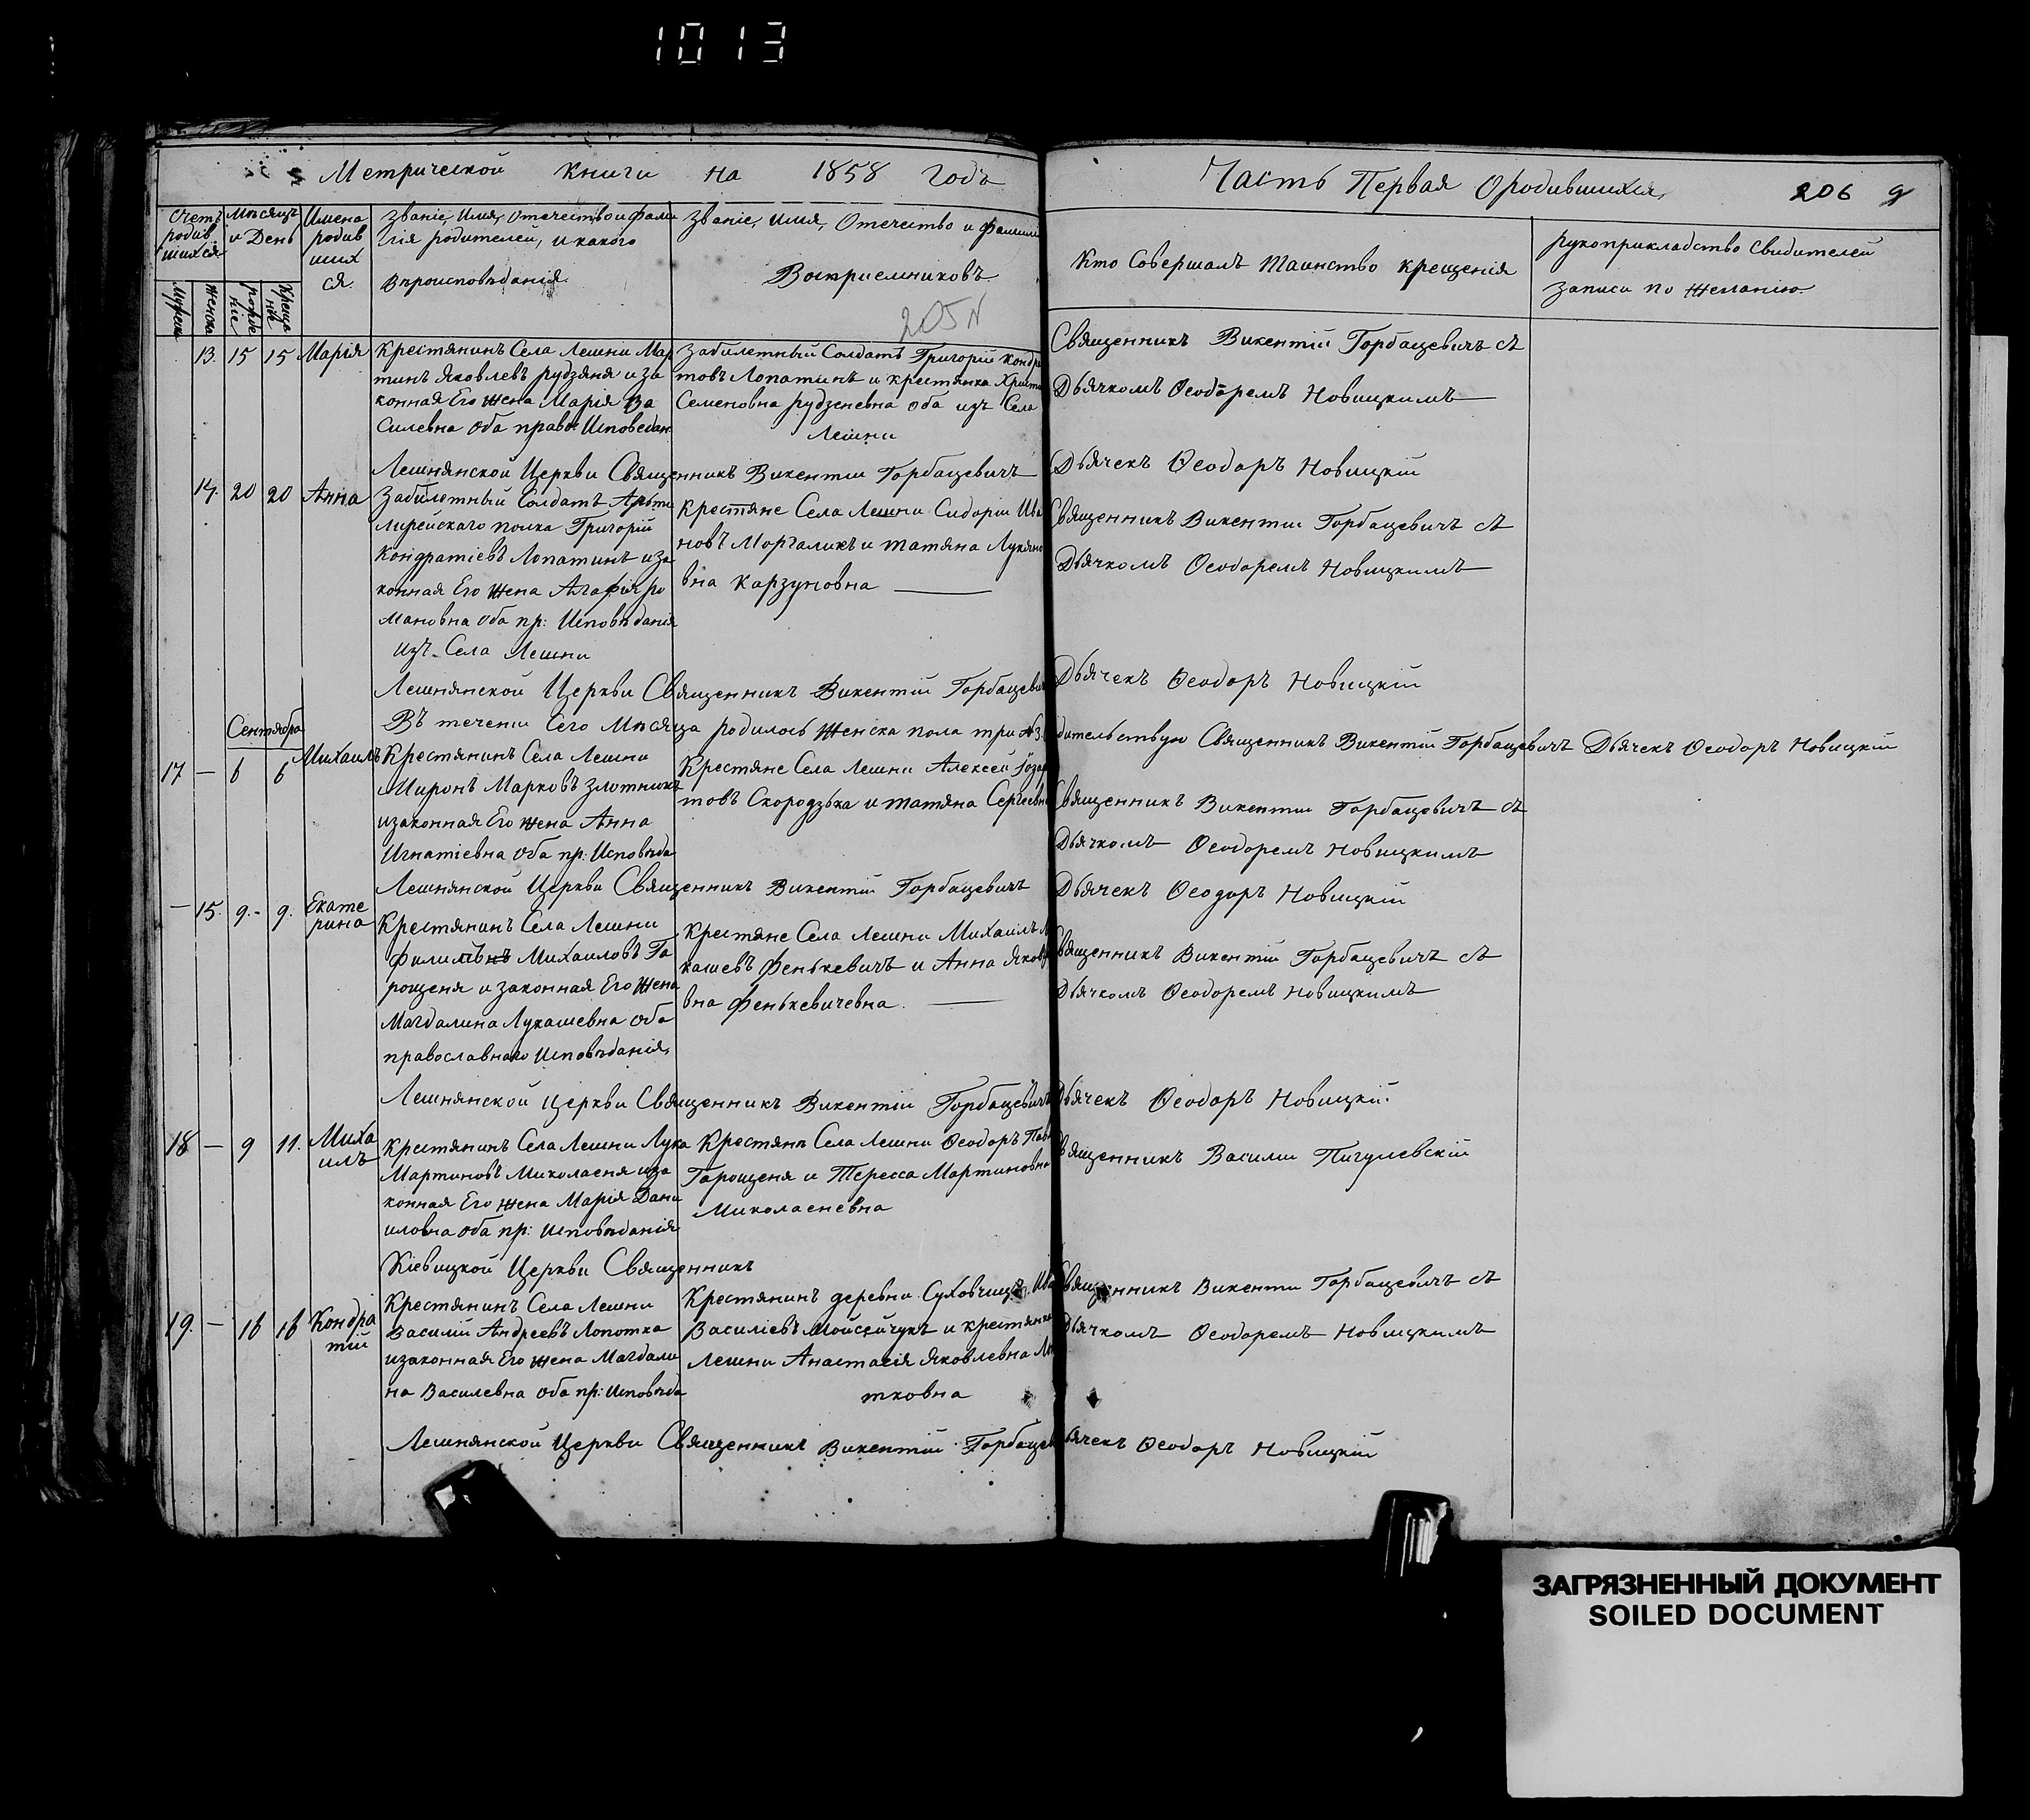 1013
Метрической книги на 1858 годъ
Часть Первая О родившихся 206 9
Счетъ родив шихся
Мѣсяцъ и День
Имена родив ших ся.
Званіе, Имя, Отечество и фами
лія родителей, и какого
Вѣроисповѣданія.
Званіе, Имя, Отечество и фамилі
Воспріемниковъ
Кто Совершалъ Таинство крещенія
рукоприкладство Свидителей
Записи по Желанію.
Мужска
Женска
рожде ніе
Креще ніе
205
13. 15 15 Марія
Крестянинъ Села Лешни Мар
тинъ Яковлевъ рудзяня и за
конная Его Жена Марія Ва
Силевна Оба право: Исповедан
Забилетный Солдатъ Григорій Кондра
товъ Лопатинъ и крестянка
Семеновна рудзеневна оба изъ Села
Лешни
Священникъ Викентій Горбацевичъ съ
Дьячкомъ Ѳеодоремъ Новицкимъ
Лешнянской Церкви Священникъ Викентіи Горбацевичъ Дьячекъ Ѳеодоръ Новицкій
14. 20 20 Анна
Забилетный Солдатъ Арьти
лирейскаго полка Григорій
Кондратіевъ Лопатинъ и за
конная Его Жена Агафія ро
мановна Оба пр: Исповѣданія
изъ Села Лешни
Крестяне Села Лешни Сидоріи Ива
новъ Моргаликъ и татяна Лукяно
вна Карзуновна
Священникъ Викентіи Горбацевичъ съ
Дьячкомъ Ѳеодоремъ Новицкимъ
Лешнянской Церкви Священникъ Викентій Горбацевич Дьячекъ Ѳеодоръ Новицкій
Въ теченіи Сего Мѣсяца родилось Женска пола три №3. дительствую Священникъ Викентій Горбацевичъ Дьячекъ Ѳеодоръ Новицкій
Сентября
17 — 6 6 Михаилъ
Крестянинъ Села Лешни
Миронъ Марковъ Злотникъ
и законная Его Жена Анна
Игнатіевна Оба пр: Исповѣда
Крестяне Села Лешни Алексей
товъ Скородзька и татяна Сергеевна
Священникъ Викентіи Горбацевичъ съ
Дьячкомъ Ѳеодоремъ Новицкимъ
Лешнянской Церкви Священникъ Викентій Горбацевичъ Дьячекъ Ѳеодоръ Новицкій
— 15. 9. - 9. Екате
рина
Крестянинъ Села Лешни
Михаиловъ Га
рощеня и законная Его Жена
Магдалина Лукашевна Оба
православнаго Исповѣданія
Крестяне Села Лешни Михаилъ
кашевъ Фенькевичъ и Анна Яковл
вна Фенькевичевна.
Священникъ Викентій Горбацевичъ съ
Дьячкомъ Ѳеодоремъ Новицкимъ
Лешнянской Церкви Священникъ Викентіи Горбацевичъ Дьячекъ Ѳеодоръ Новицкій.
18 — 9 11. Миха
илъ
Крестянинъ Села Лешни Лука
Мартиновъ Миколаеня и за
конная Его Жена Марія Дани
иловна Оба пр: Исповѣданія
Крестяне Села Лешни Ѳеодоръ
Гарощеня и Тересса Мартиновна
Миколаеневна
Священникъ Василіи Пигулевскій
Кіевицкой Церкви Священникъ
19. — 16 16 Кондра
тій
Крестянинъ Села Лешни
Василій Андреевъ Лопотка
и законная Его Жена Магдали
на Василевна Оба пр: Исповѣда
Крестянинъ деревни Суховчицъ
Василіевъ Мойсейчукъ и крестянка
Лешни Анастасія Яковлевна
тковна
Священникъ Викенти Горбацевичъ съ
Дьячкомъ Ѳеодоремъ Новицкимъ
Лешнянской Церкви Священникъ Викентій Горбацев Дьячекъ Ѳеодоръ Новицкій
ЗАГРЯЗНЕННЫЙ ДОКУМЕНТ
SOILED DOCUMENT